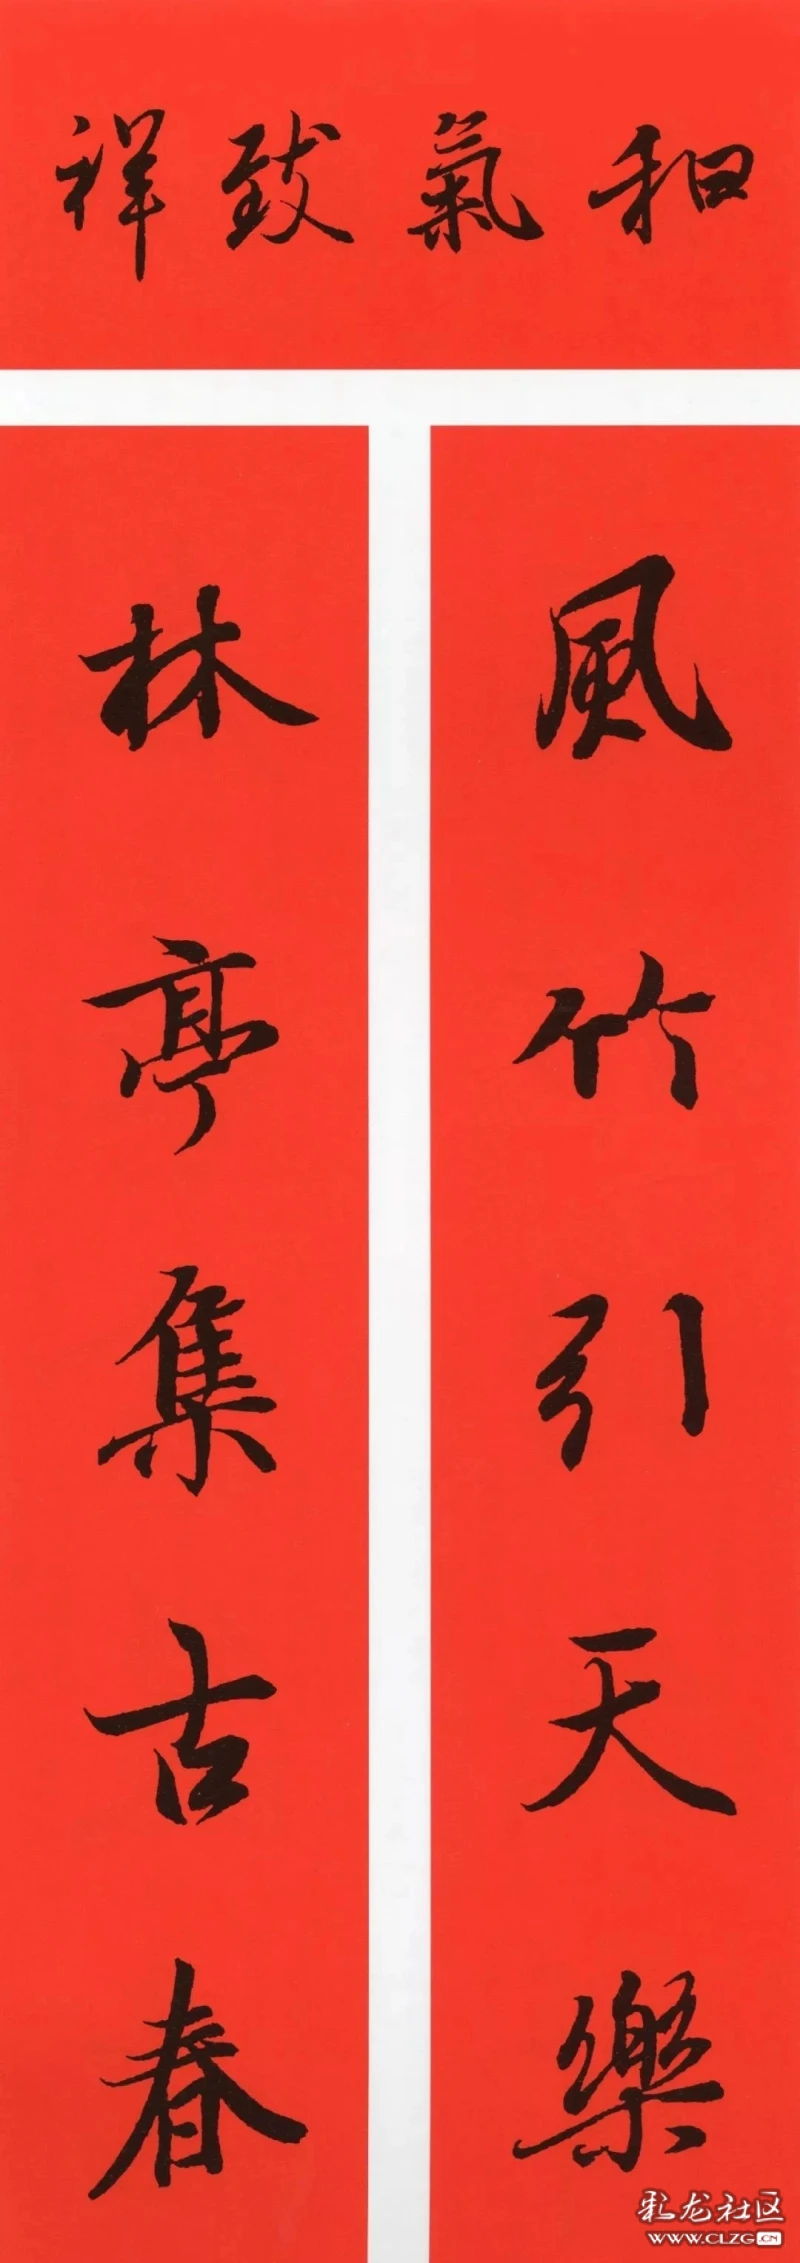 和氣致祥
風竹引天樂
林亭集古春
彩龙社区
WWW.CLZG.CN